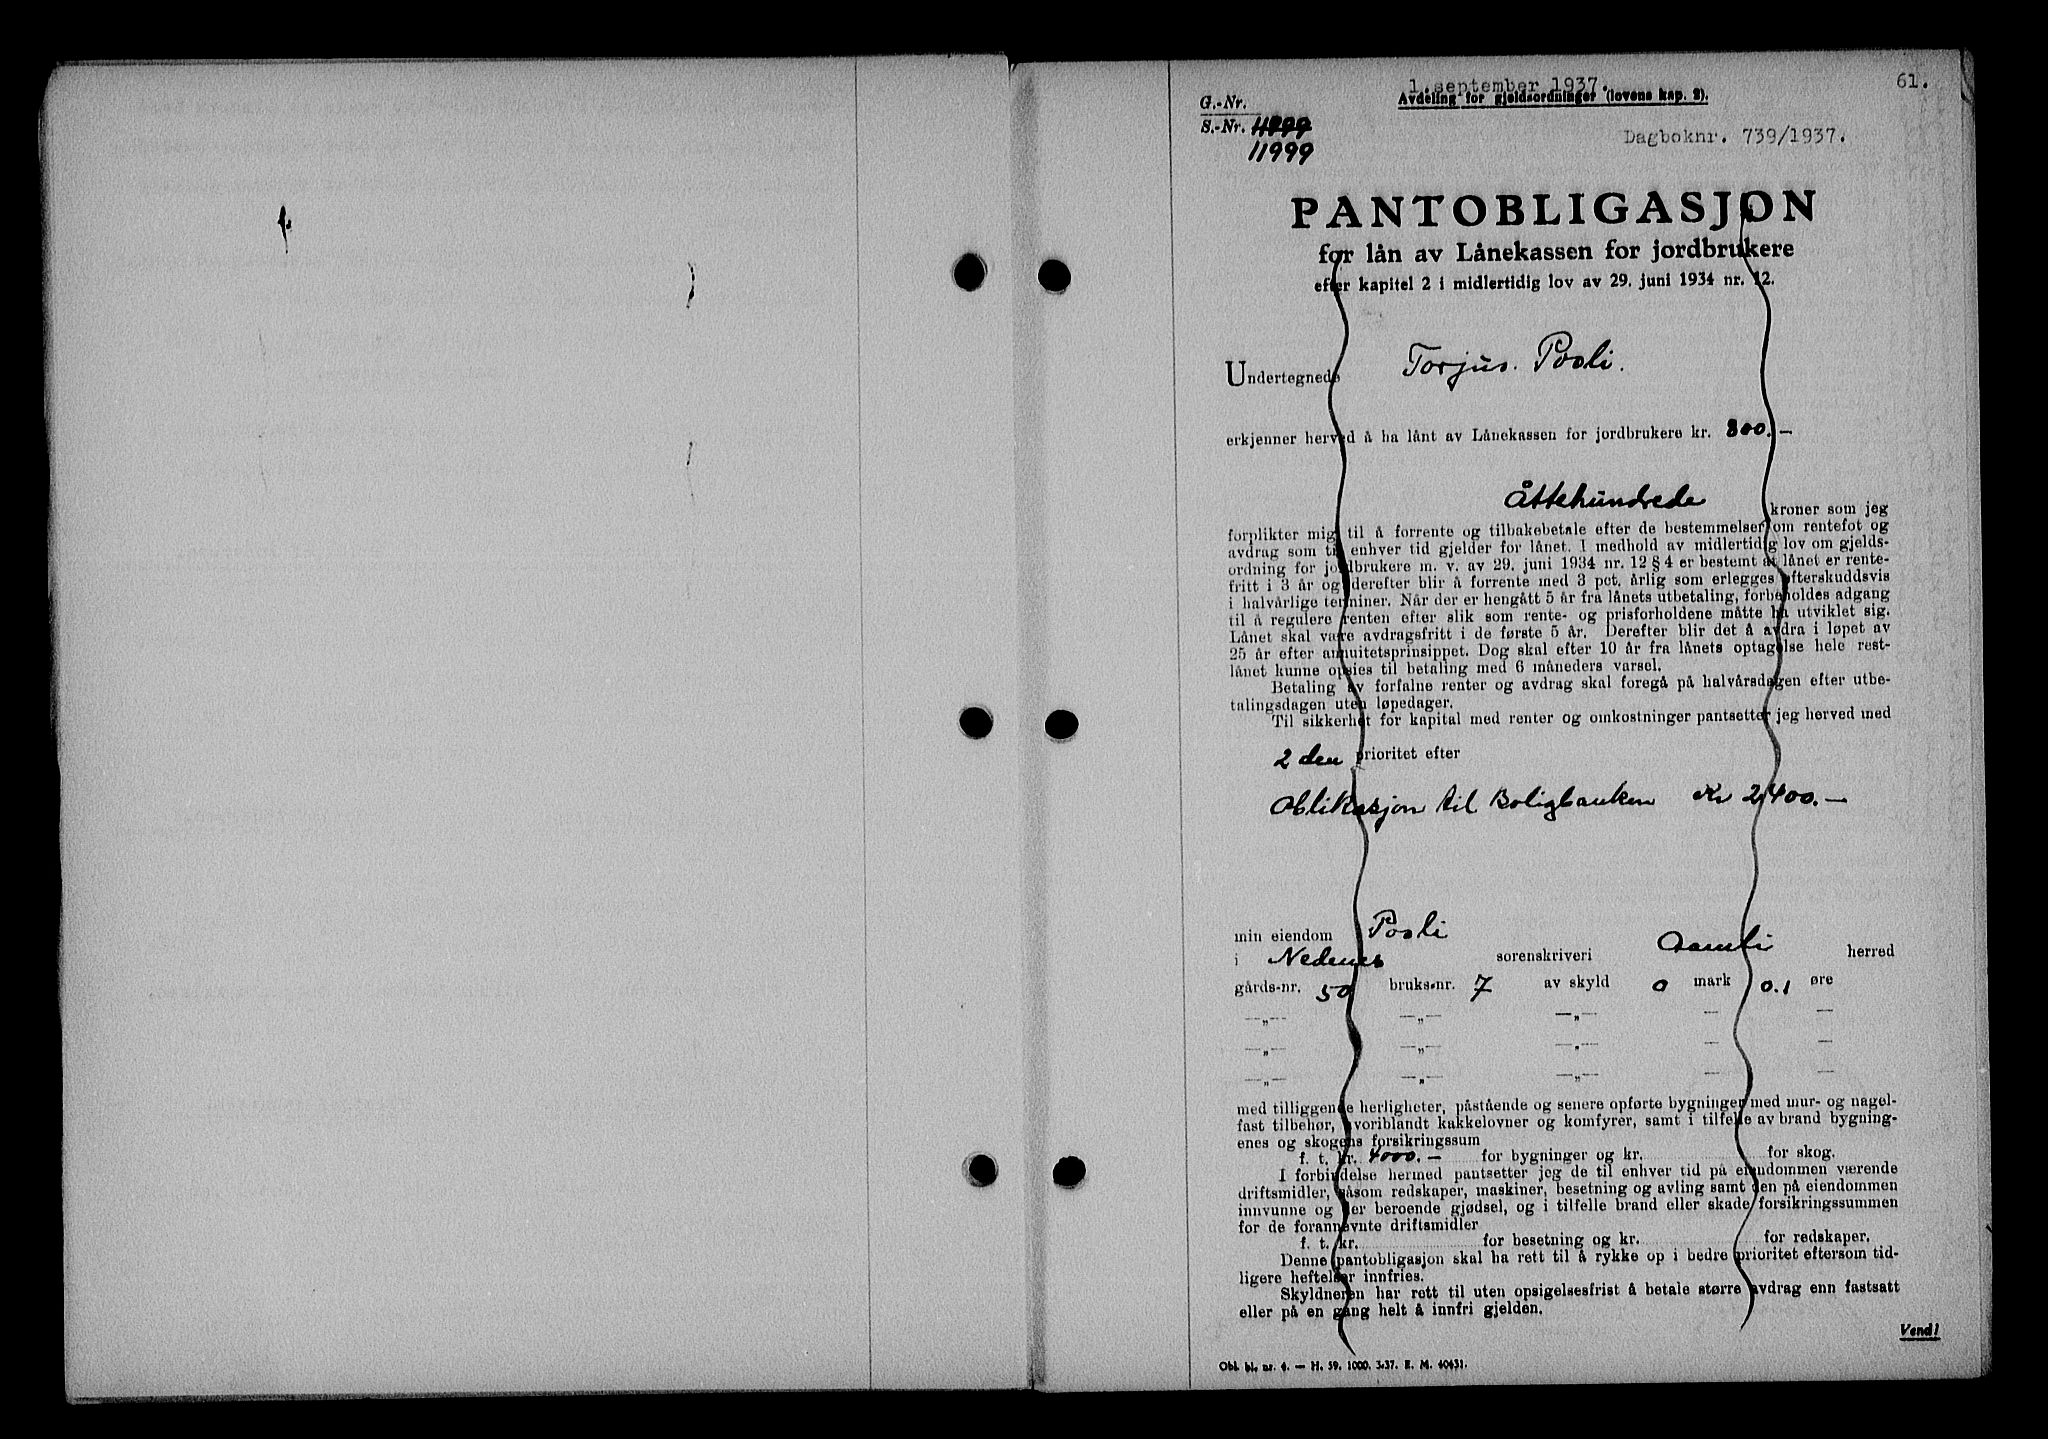 1. september 1937.
61.
G.-Nr.
Avdeling for gjeldsordninger (lovens kap. 2).
S.-Nr.
11999
Dagboknr. 739/1937.
PANTOBLIGASJON
for lån av Lånekassen for jordbrukere
efter kapitel 2 i midlertidig lov av 29. juni 1934 nr. 12.
Undertegnede Torjus. Posli.
erkjenner herved å ha lånt av Lånekassen for jordbrukere kr. 800.—
Åttehundrede kroner som jeg
forplikter mig til å forrente og tilbakebetale efter de bestemmelser om rentefot og
avdrag som til enhver tid gjelder for lånet. I medhold av midlertidig lov om gjelds-
ordning for jordbrukere m. v. av 29. juni 1934 nr. 12 § 4 er bestemt at lånet er rente-
fritt i 3 år og derefter blir å forrente med 3 pct. årlig som erlegges efterskuddsvis
i halvårlige terminer. Når der er hengått 5 år fra lånets utbetaling, forbeholdes adgang
til å regulere renten efter slik som rente- og prisforholdene måtte ha utviklet sig.
Lånet skal være avdragsfritt i de første 5 år. Derefter blir det å avdra i løpet av
25 år efter annuitetsprinsippet. Dog skal efter 10 år fra lånets optagelse hele rest-
lånet kunne opsies til betaling med 6 måneders varsel.
Betaling av forfalne renter og avdrag skal foregå på halvårsdagen efter utbe-
talingsdagen uten løpedager.
Til sikkerhet for kapital med renter og omkostninger pantsetter jeg herved med
2 den prioritet efter
Oblikasjon til Boligbanken Kr 2400.—
min eiendom Posli
i Nedenes sorenskriveri Aamli herred
gårds-nr. 50 bruks-nr. 7 av skyld 0 mark 0.1 øre
—„— —„— —„— — —
—„— —„— —„— — —
—„— —„— —„— — —
med tilliggende herligheter, påstående og senere opførte bygninger med mur- og nagel-
fast tilbehør, hvoriblandt kakkelovner og komfyrer, samt i tilfelle av brand bygning-
enes og skogens forsikringssum
f. t. kr. 4000.— for bygninger og kr. for skog.
I forbindelse hermed pantsetter jeg de til enhver tid på eiendommen værende
driftsmidler, såsom redskaper, maskiner, besetning og avling samt den på eiendommen
innvunne og der beroende gjødsel, og i tilfelle brand eller skade forsikringssummen
for de forannevnte driftsmidler
f. t. kr. for besetning og kr. for redskaper.
Denne pantobligasjon skal ha rett til å rykke op i bedre prioritet eftersom tid-
ligere heftelser innfries.
Skyldneren har rett til uten opsigelsesfrist å betale større avdrag enn fastsatt
eller på en gang helt å innfri gjelden.
Vend!
Obl. bl. nr. 4. — H. 59. 1000. 3.37. E. M. 40431.